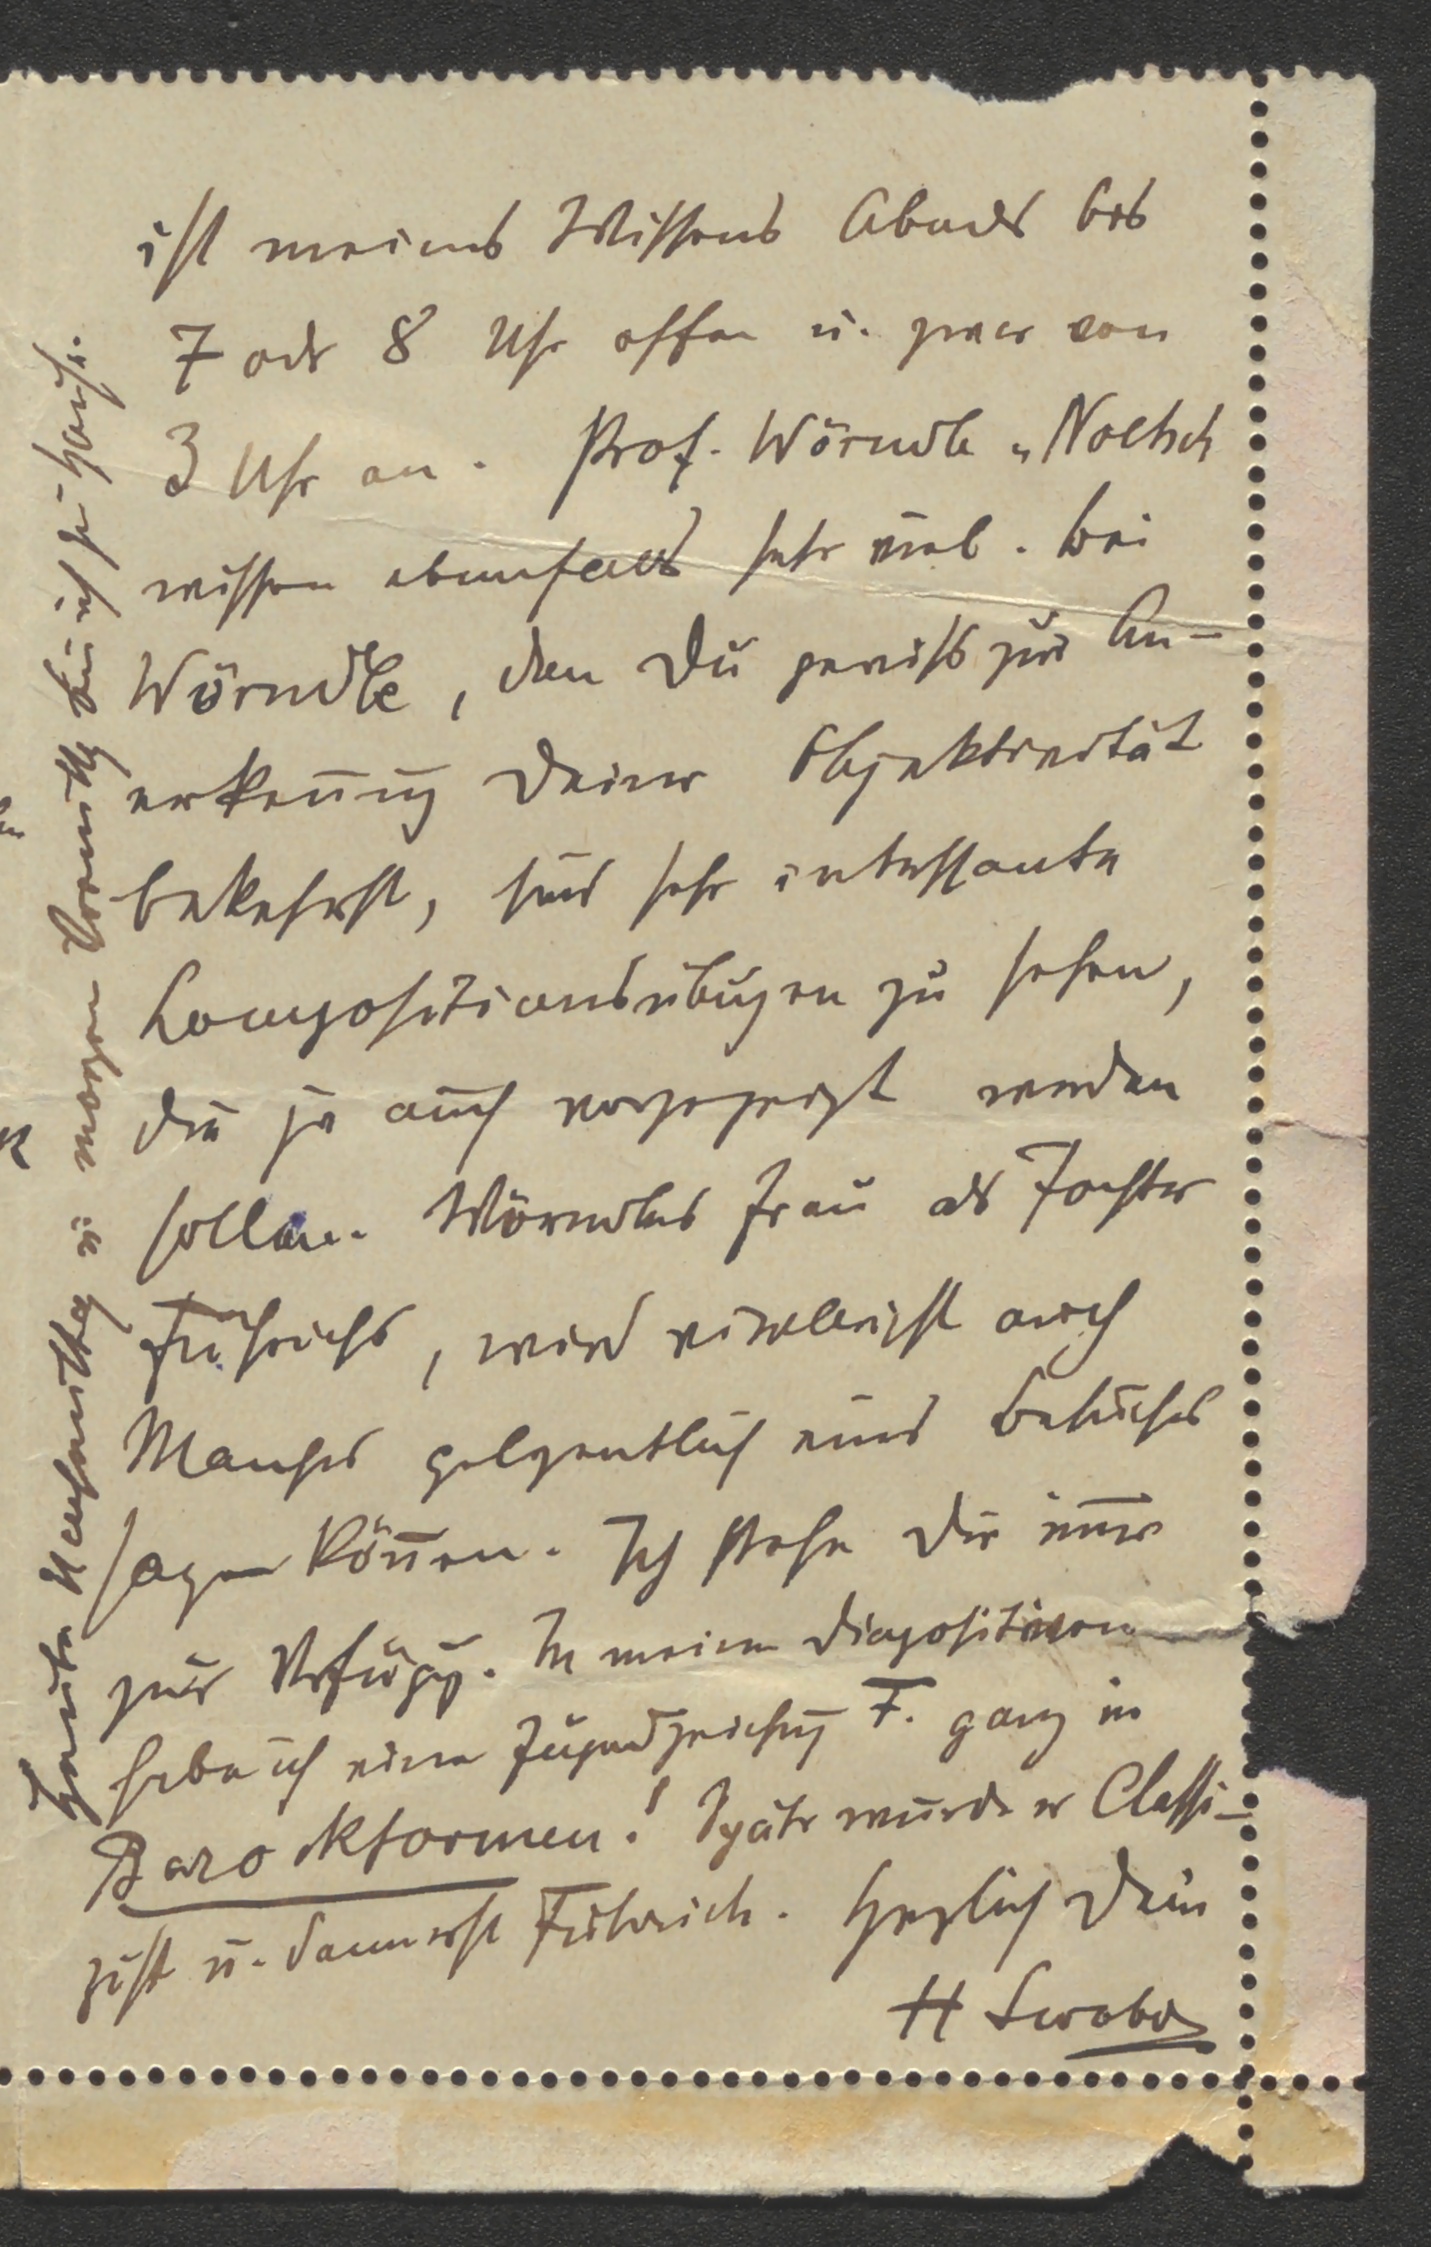 ist meines Wissens Abends bis
7 oder 8 Uhr offen u. zwar von
3 Uhr an. Prof. Wörndle u Noltsch
wissen ebenfalls sehr viel. Bei
Wörndle, den Du gewiss zur An-
erkennung Deiner Objektivität
bekehrst, sind sehr interessante
Compositionsübungen zu sehen,
die ja auch vorgezeigt werden
sollen. Wörndles Frau als Tochter
Führichs, wird vielleicht auch
Manches gelegentlich eines Besuches
sagen können. Ich stehe Dir immer
zur Verfügung. In meinen Diapositiven
habe ich eine Jugendzeichnung F. ganz in
Barockformen! Später wurde er Classi-
zist u. dann erst Führich. Herzlich Dein
H Swoboda
Heute Nachmittag u morgen Vormittag bin ich zu Hause.